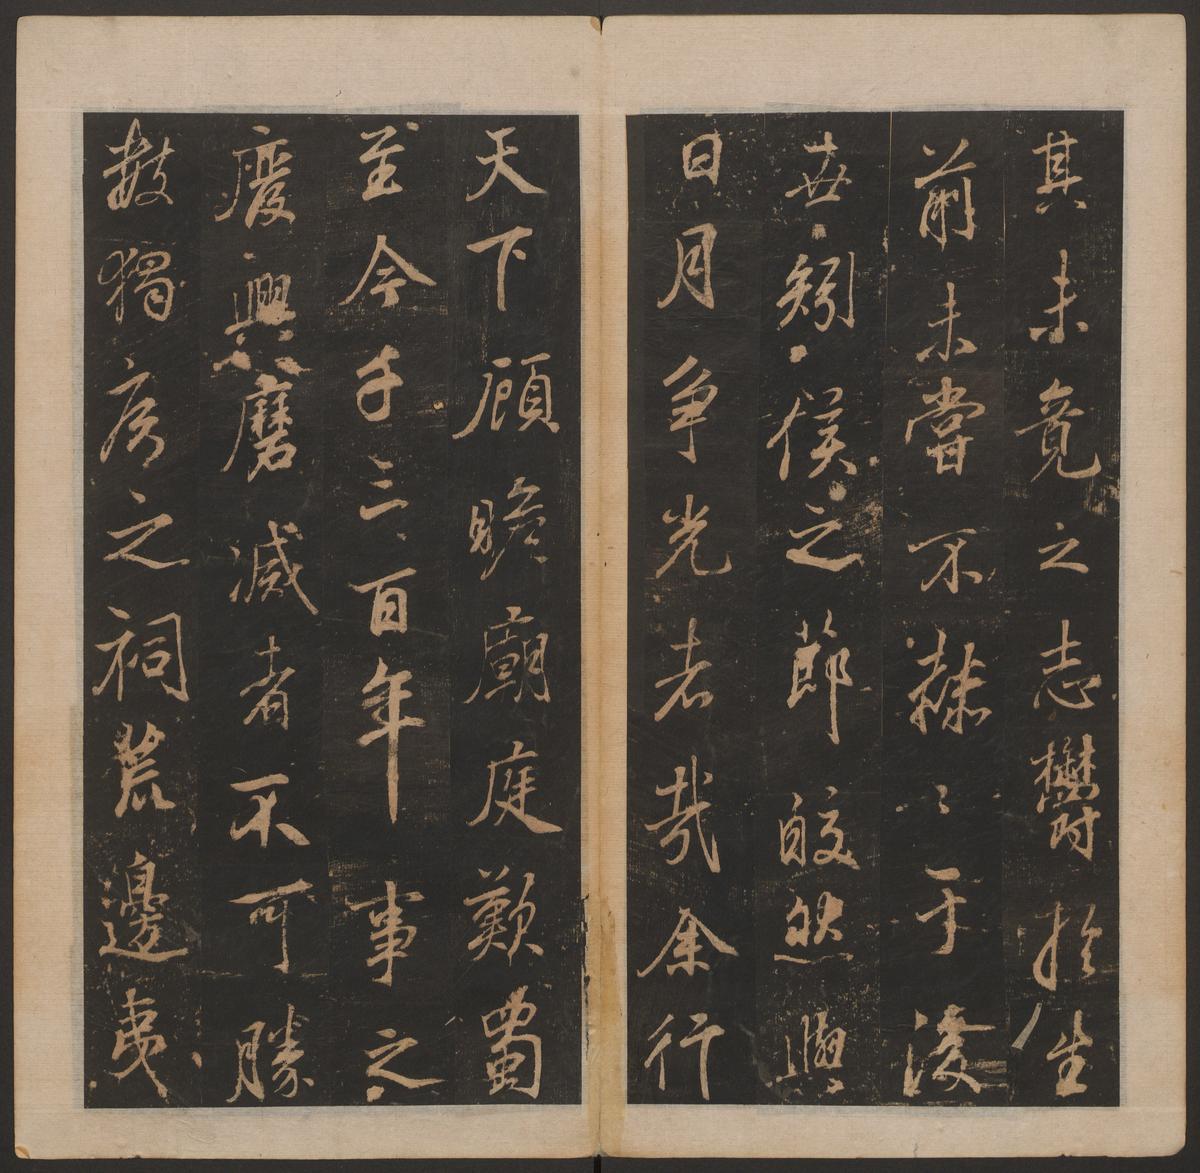 其未竟之志欝於生
前未嘗不赫〻于後
世矧侯之節皎然與
日月争光者哉余行
天下顧瞻廟庭歎蜀
至今千三百年事之
廢興磨滅者不可勝
數獨侯之祠荒邊夷